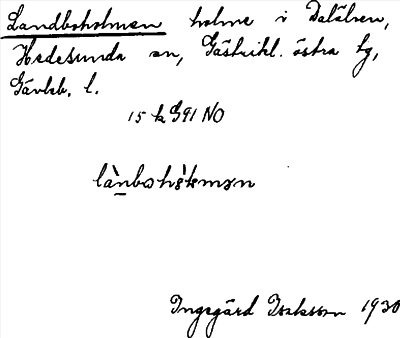 Landboholmen holme i Dalälven,
Hedesunda sn, Gästrikl. östra tg,
Gävleb. l.
15 k G91 NO
lànbohòlmən
Ingegärd Isaksson 1930